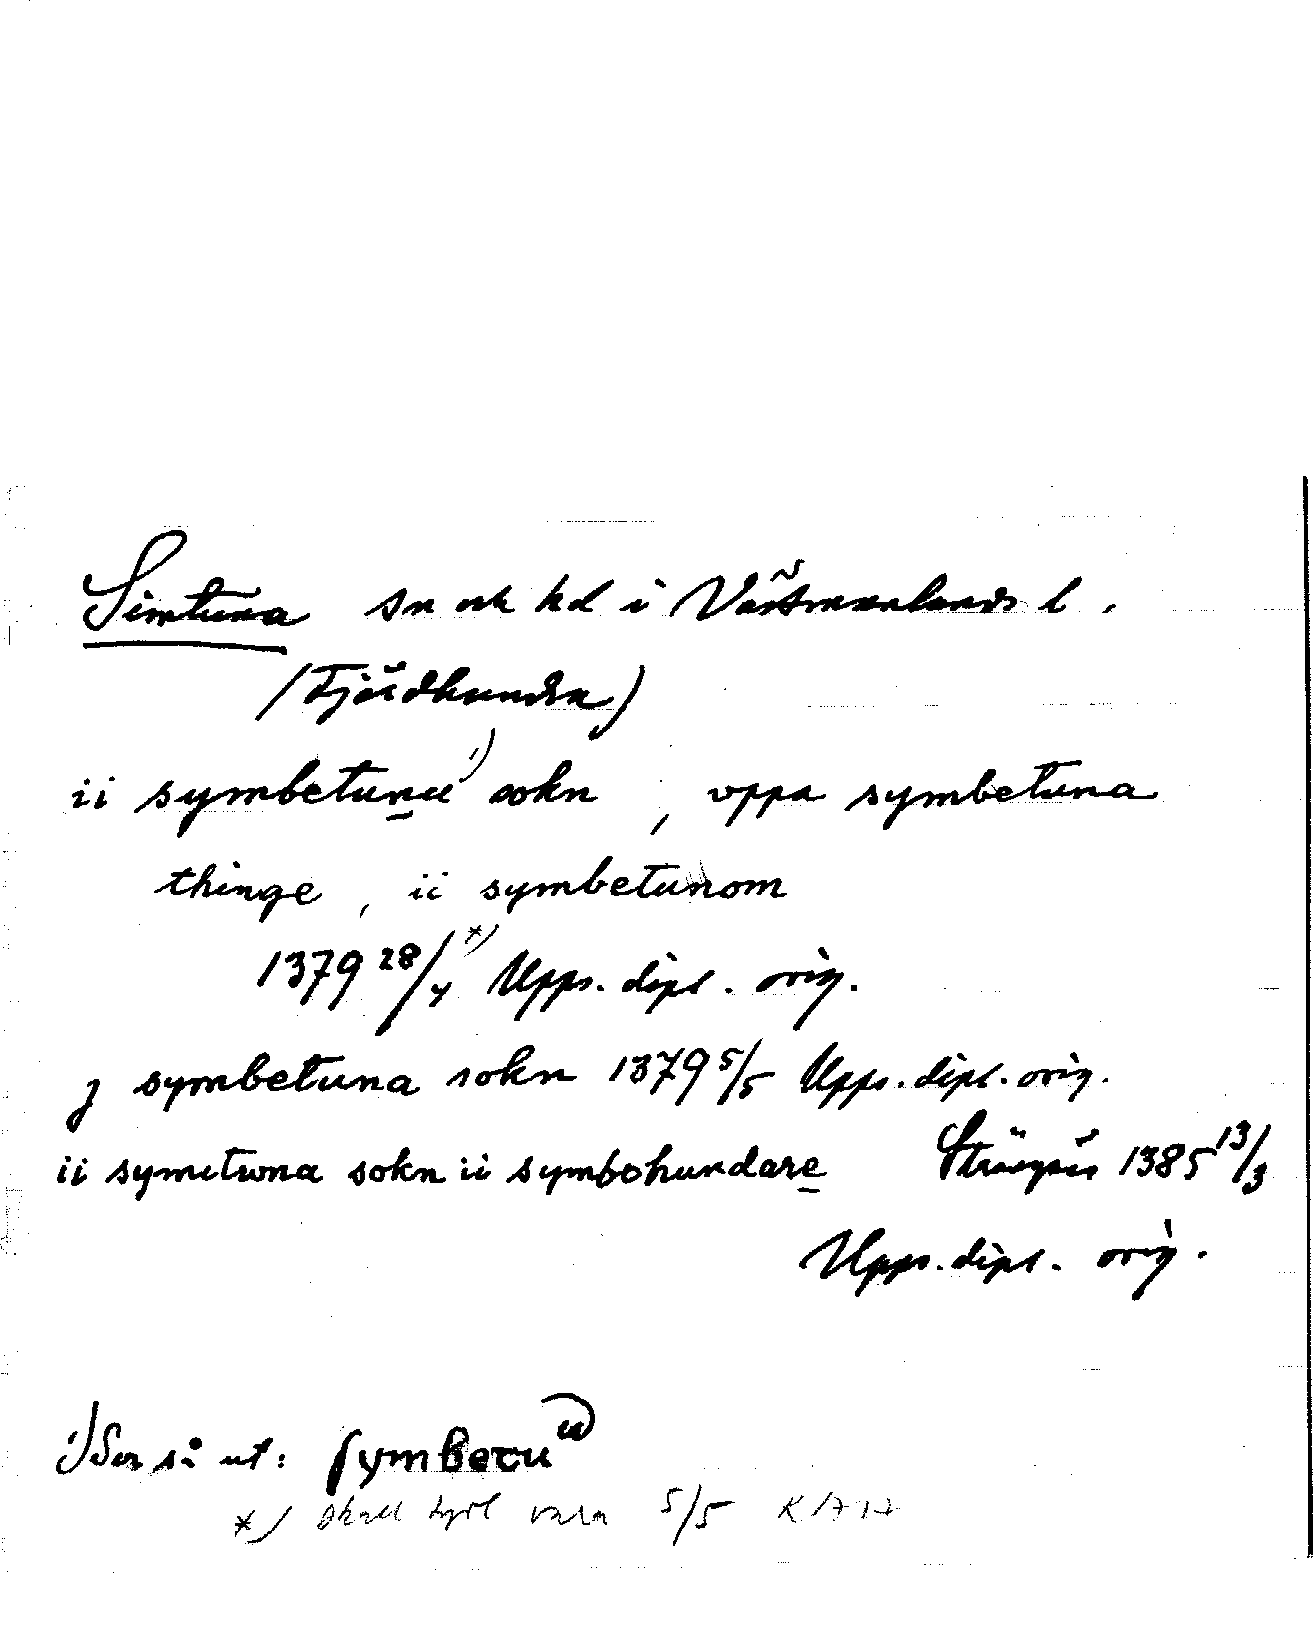 Simtuna sn och hd i Västmanlands l.
(Fjärdhundra)
ii symbetunu¹⁾ sokn , vppa symbetuna
thinge , ii symbetunom
1379 28/4 *) Upps. dipl. orig.
j symbetuna sokn 1379 5/5 Upps. dipl. orig.
ii symetwna sokn ii symbohundare Strängnäs 1385 13/3
Upps. dipl. orig.
1) Ser så ut: symbetu
*) skall tyvl vara 5/5